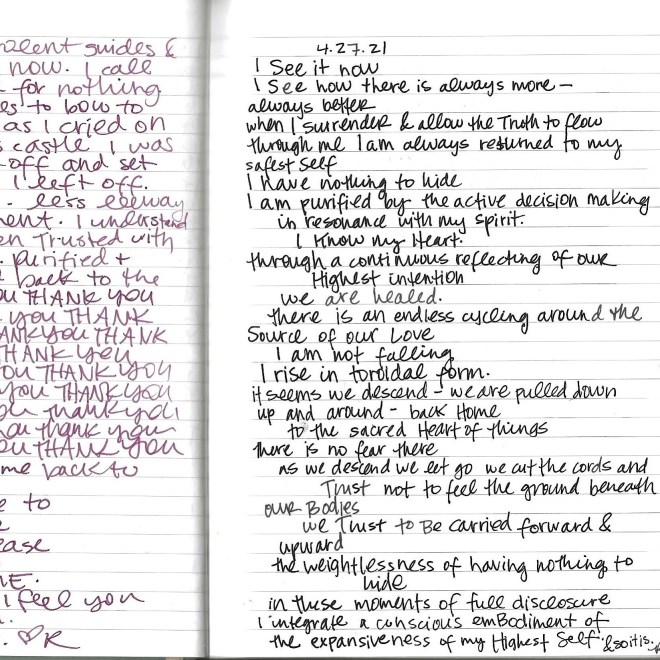 valent guides &
now. I call
for nothing
es to bow to
as I cried on
s castle I was
off and set
I left off.
less leeway
ment. I understand
en Trusted with
. purified +
back to the
OU THANK YOU
YOU THANK
ANK YOU THANK
THANK YOU
OU THANK YOU
YOU THANK YOU
thank you
you thank you
OU THANK YOU
me back to
e to
ease
E.
I feel you
. ♡R
4.27.21
I See it now
I See how there is always more –
always better
when I surrender & allow the Truth to flow
through me I am always returned to my
safest Self
I have nothing to hide
I am purified by the active decision making
in resonance with my spirit.
I Know my Heart.
through a continuous reflecting of our
Highest intention
we are healed.
there is an endless cycling around the
Source of our Love
I am not falling
I rise in toroidal form.
it seems we descend – we are pulled down
up and around – back Home
to the sacred Heart of things
there is no fear there
as we descend we let go we cut the cords and
Trust not to feel the ground beneath
our Bodies
we Trust to Be carried forward &
upward
the weightlessness of having nothing to
hide
in these moments of full disclosure
I integrate a conscious emBodiment of
the expansiveness of my Highest Self. & so it is.